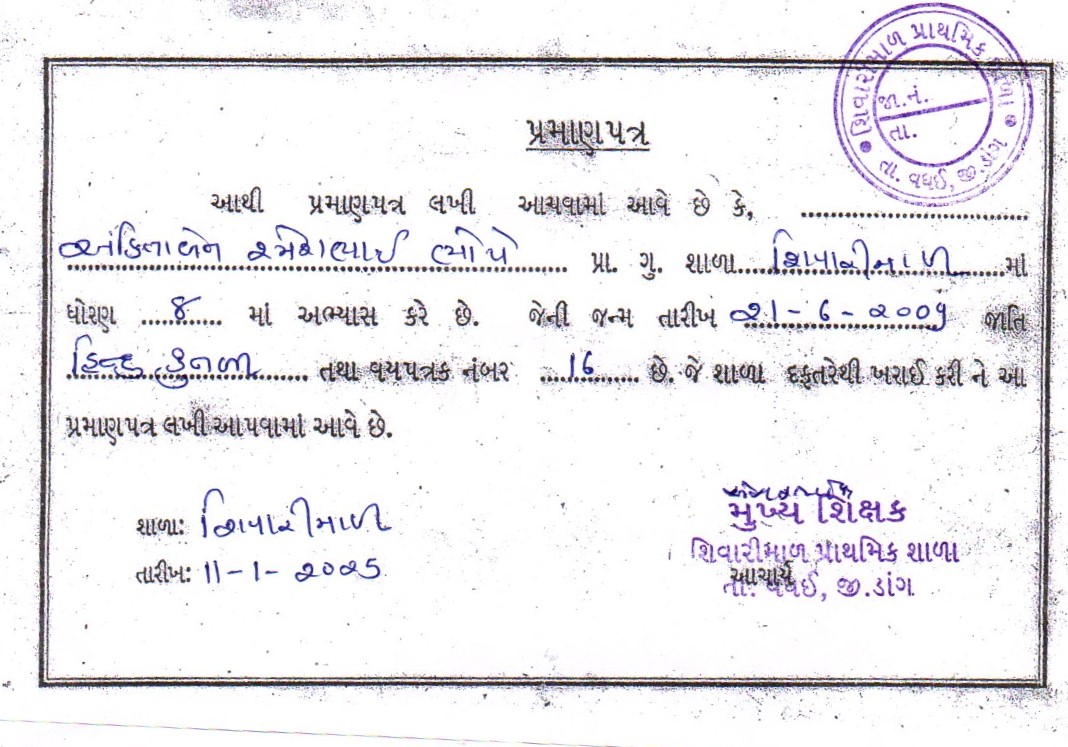 શિવારીમાળ પ્રાથમિક શાળા
જા.નં.
તા.
તા. વઘઈ, જી. ડાંગ
પ્રમાણપત્ર
આથી પ્રમાણપત્ર લખી આપવામાં આવે છે કે, ....................
અંકિતાબેન રમેશભાઈ ભોયે પ્રા. ગુ. શાળા શિવારીમાળ માં
ધોરણ 8 માં અભ્યાસ કરે છે. જેની જન્મ તારીખ 21-6-2009 જાતિ
હિન્દુ કુનબી તથા વયપત્રક નંબર 16 છે. જે શાળા દફતરેથી ખરાઈ કરી ને આ
પ્રમાણપત્ર લખી આપવામાં આવે છે.
શાળા: શિવારીમાળ
તારીખ: 11-1-2025
મુખ્ય શિક્ષક
શિવારીમાળ પ્રાથમિક શાળા
આચાર્ય
તા. વઘઈ, જી.ડાંગ